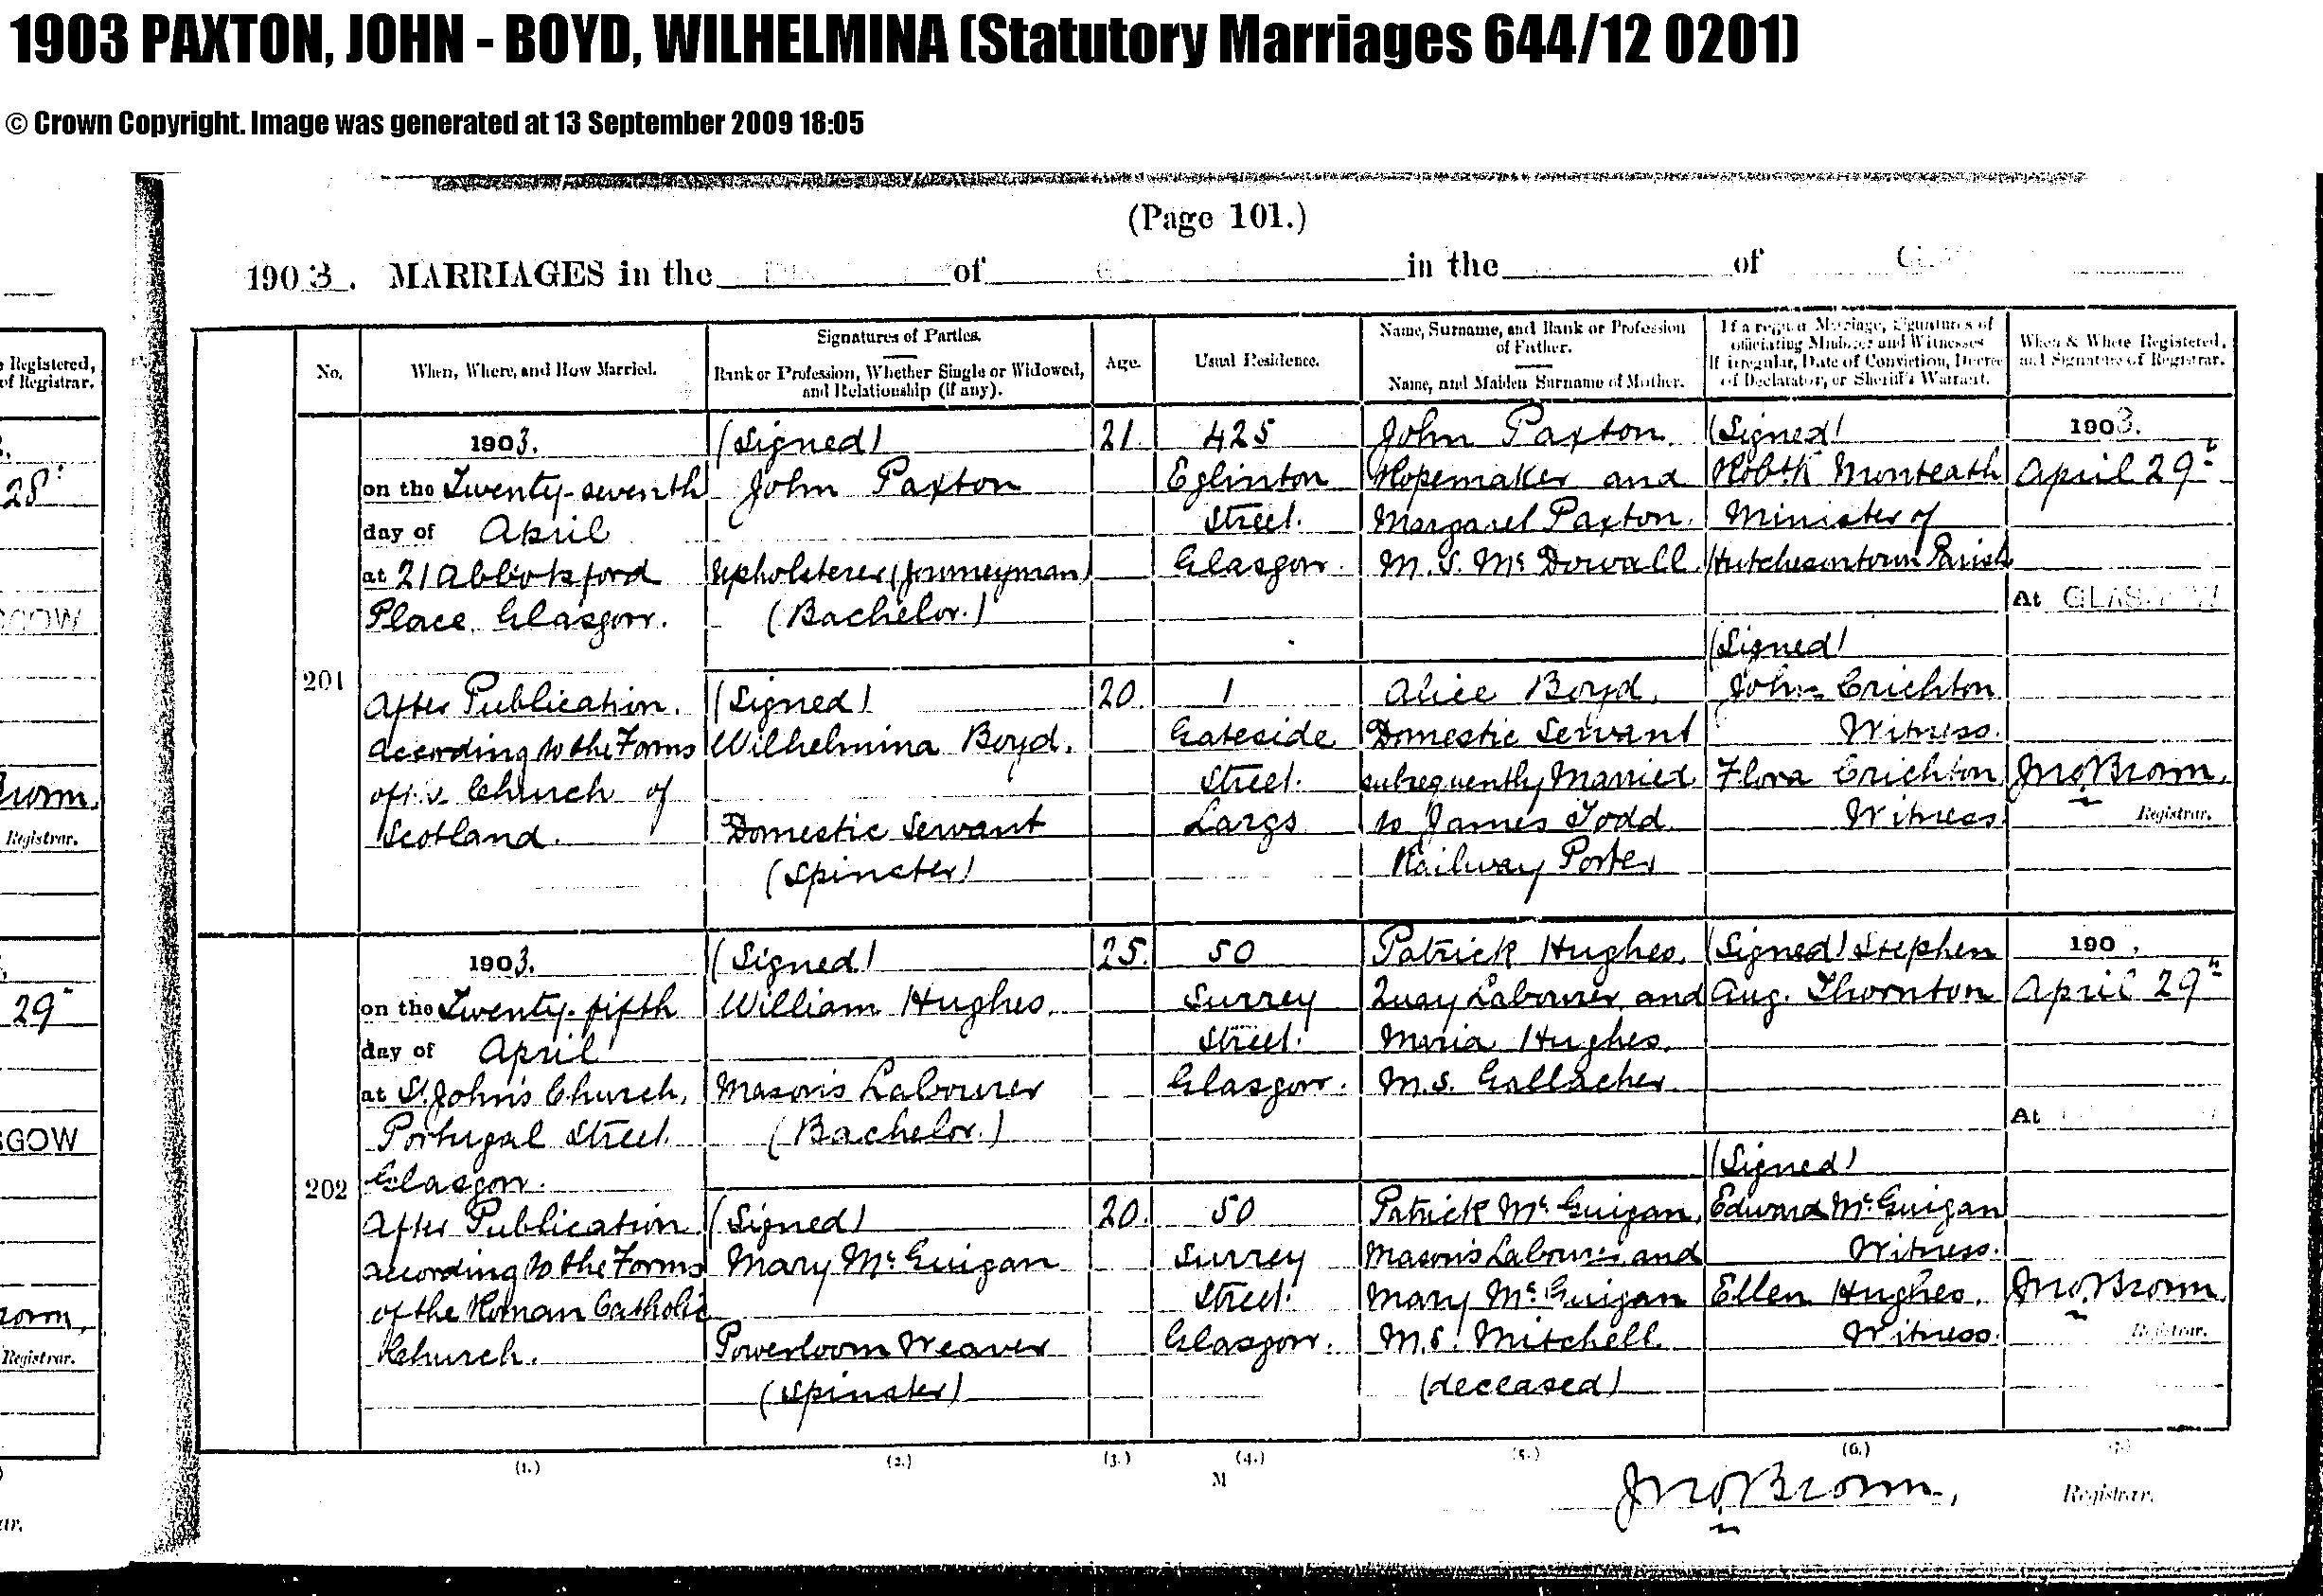 1903 PAXTON, JOHN - BOYD, WILHELMINA (Statutory Marriages 644/12 0201)
© Crown Copyright. Image was generated at 13 September 2009 18:05
(Page 101.)
1903. MARRIAGES in the of in the of
Registered,
of Registrar.
28
GOW
Registrar.
29
SGOW
Registrar.
No.
When, Where, and How Married.
Signatures of Parties.
Rank or Profession, Whether Single or Widowed,
and Relationship (if any).
Age.
Usual Residence.
Name, Surname, and Rank or Profession
of Father.
Name, and Maiden Surname of Mother.
If a regular Marriage, Signatures of
officiating Minister and Witnesses
If irregular, Date of Conviction, Decree
of Declarator, or Sheriff's Warrant.
When & Where Registered,
and Signature of Registrar.
201
1903.
on the Twenty-seventh
day of April
at 21 Abbotsford
Place, Glasgow.
After Publication,
according to the Forms
of Church of
Scotland.
(Signed)
John Paxton
Upholsterer (Journeyman)
(Bachelor.)
(Signed)
Wilhelmina Boyd.
Domestic Servant
(Spinster)
21.
20.
425
Eglinton
Street.
Glasgow.
1
Gateside
Street.
Largs
John Paxton.
Ropemaker and
Margaret Paxton.
M.S. McDowall
Alice Boyd.
Domestic Servant
subsequently Married
to James Todd
Railway Porter
(Signed)
Robt. Monteath
Minister of
Hutchesontown Parish
(Signed)
John Crichton
Witness.
Flora Crichton
Witness.
1903.
April 29th
At GLASGOW
Jno. Brown.
Registrar.
202
1903.
on the Twenty-fifth
day of April
at St. John's Church,
Portugal Street
Glasgow.
After Publication
according to the Forms
of the Roman Catholic
Church.
(Signed)
William Hughes.
Mason's Labourer
(Bachelor.)
(Signed)
Mary McGuigan
Powerloom Weaver
(Spinster)
25.
20.
50
Surrey
Street.
Glasgow.
50
Surrey
Street.
Glasgow.
Patrick Hughes.
Quay Labourer and
Maria Hughes.
M.S. Gallacher
Patrick McGuigan,
Mason's Labourer and
Mary McGuigan
M.S. Mitchell
(deceased)
(Signed) Stephen
Aug. Thornton
(Signed)
Edward McGuigan
Witness.
Ellen Hughes.
Witness.
190 .
April 29th
At
Jno. Brown.
Registrar.
(1.) (2.) (3.) (4.) (5.) (6.) (7.)
M
Jno. Brown,
Registrar.